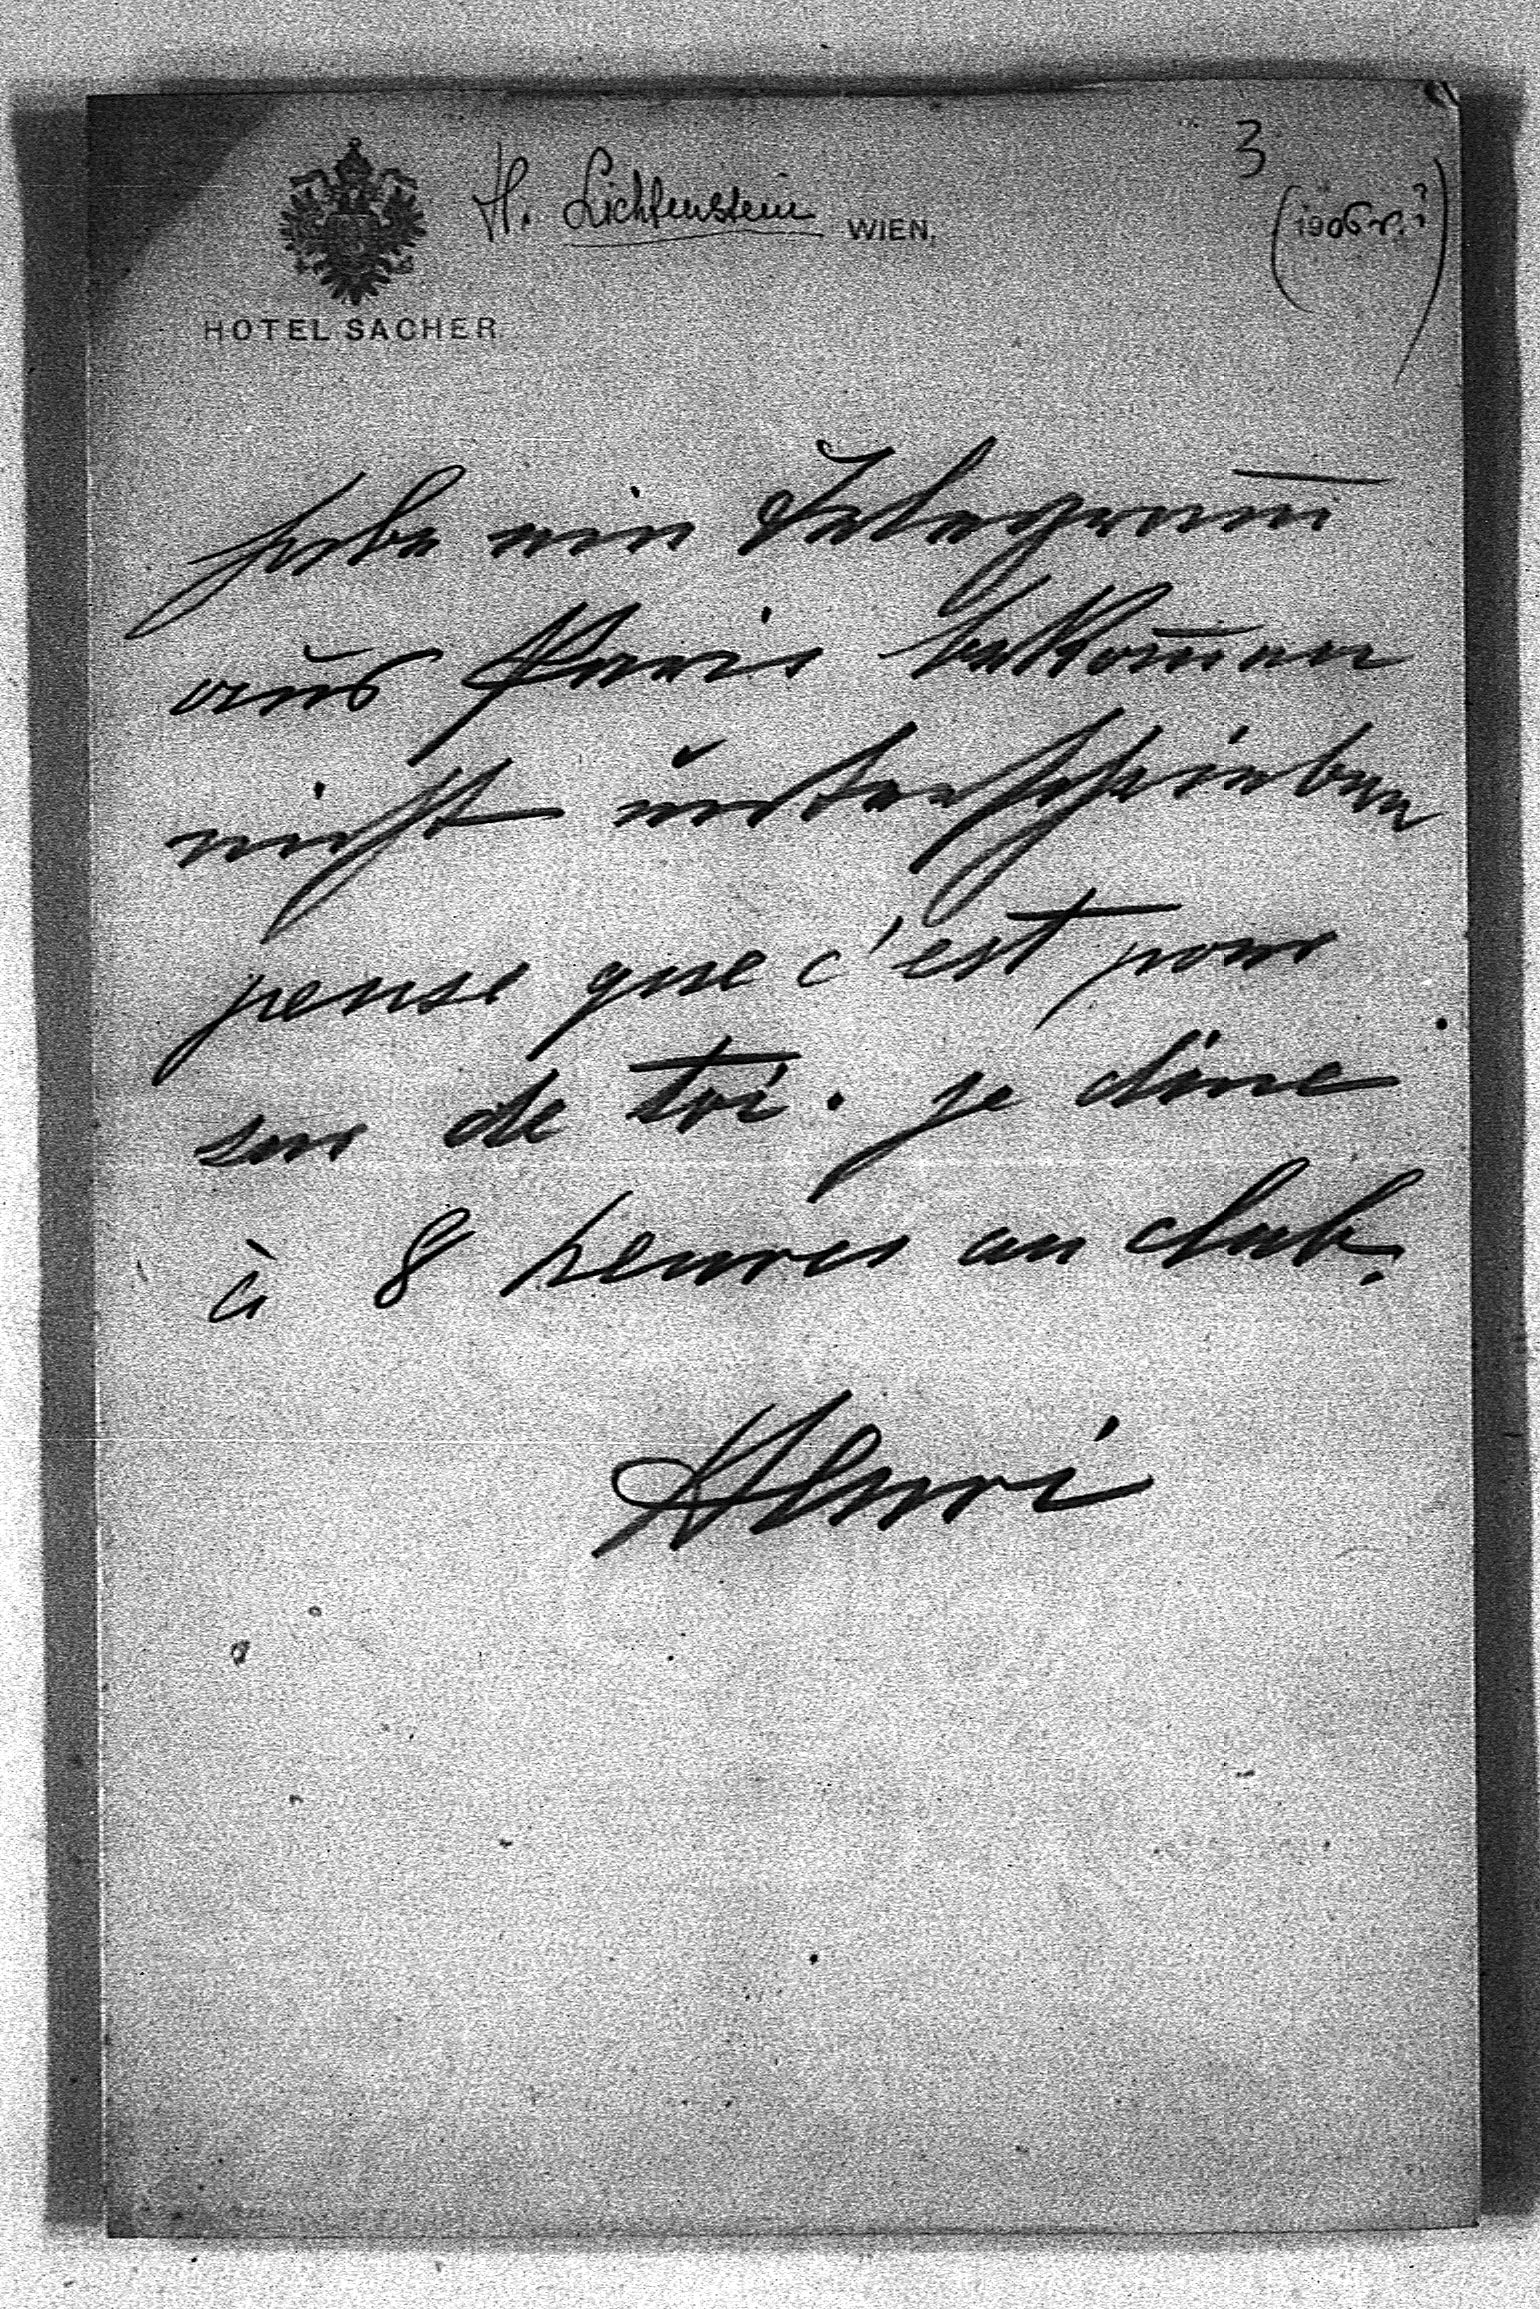 3
H. Lichtenstein WIEN.
(1906 r.?)
HOTEL SACHER
habe ein Telegram̅
aus Paris bekom̅en
nicht unterschrieben
pense que c'est pour
sur de toi. je dine
à 8 heures au club.
Henri